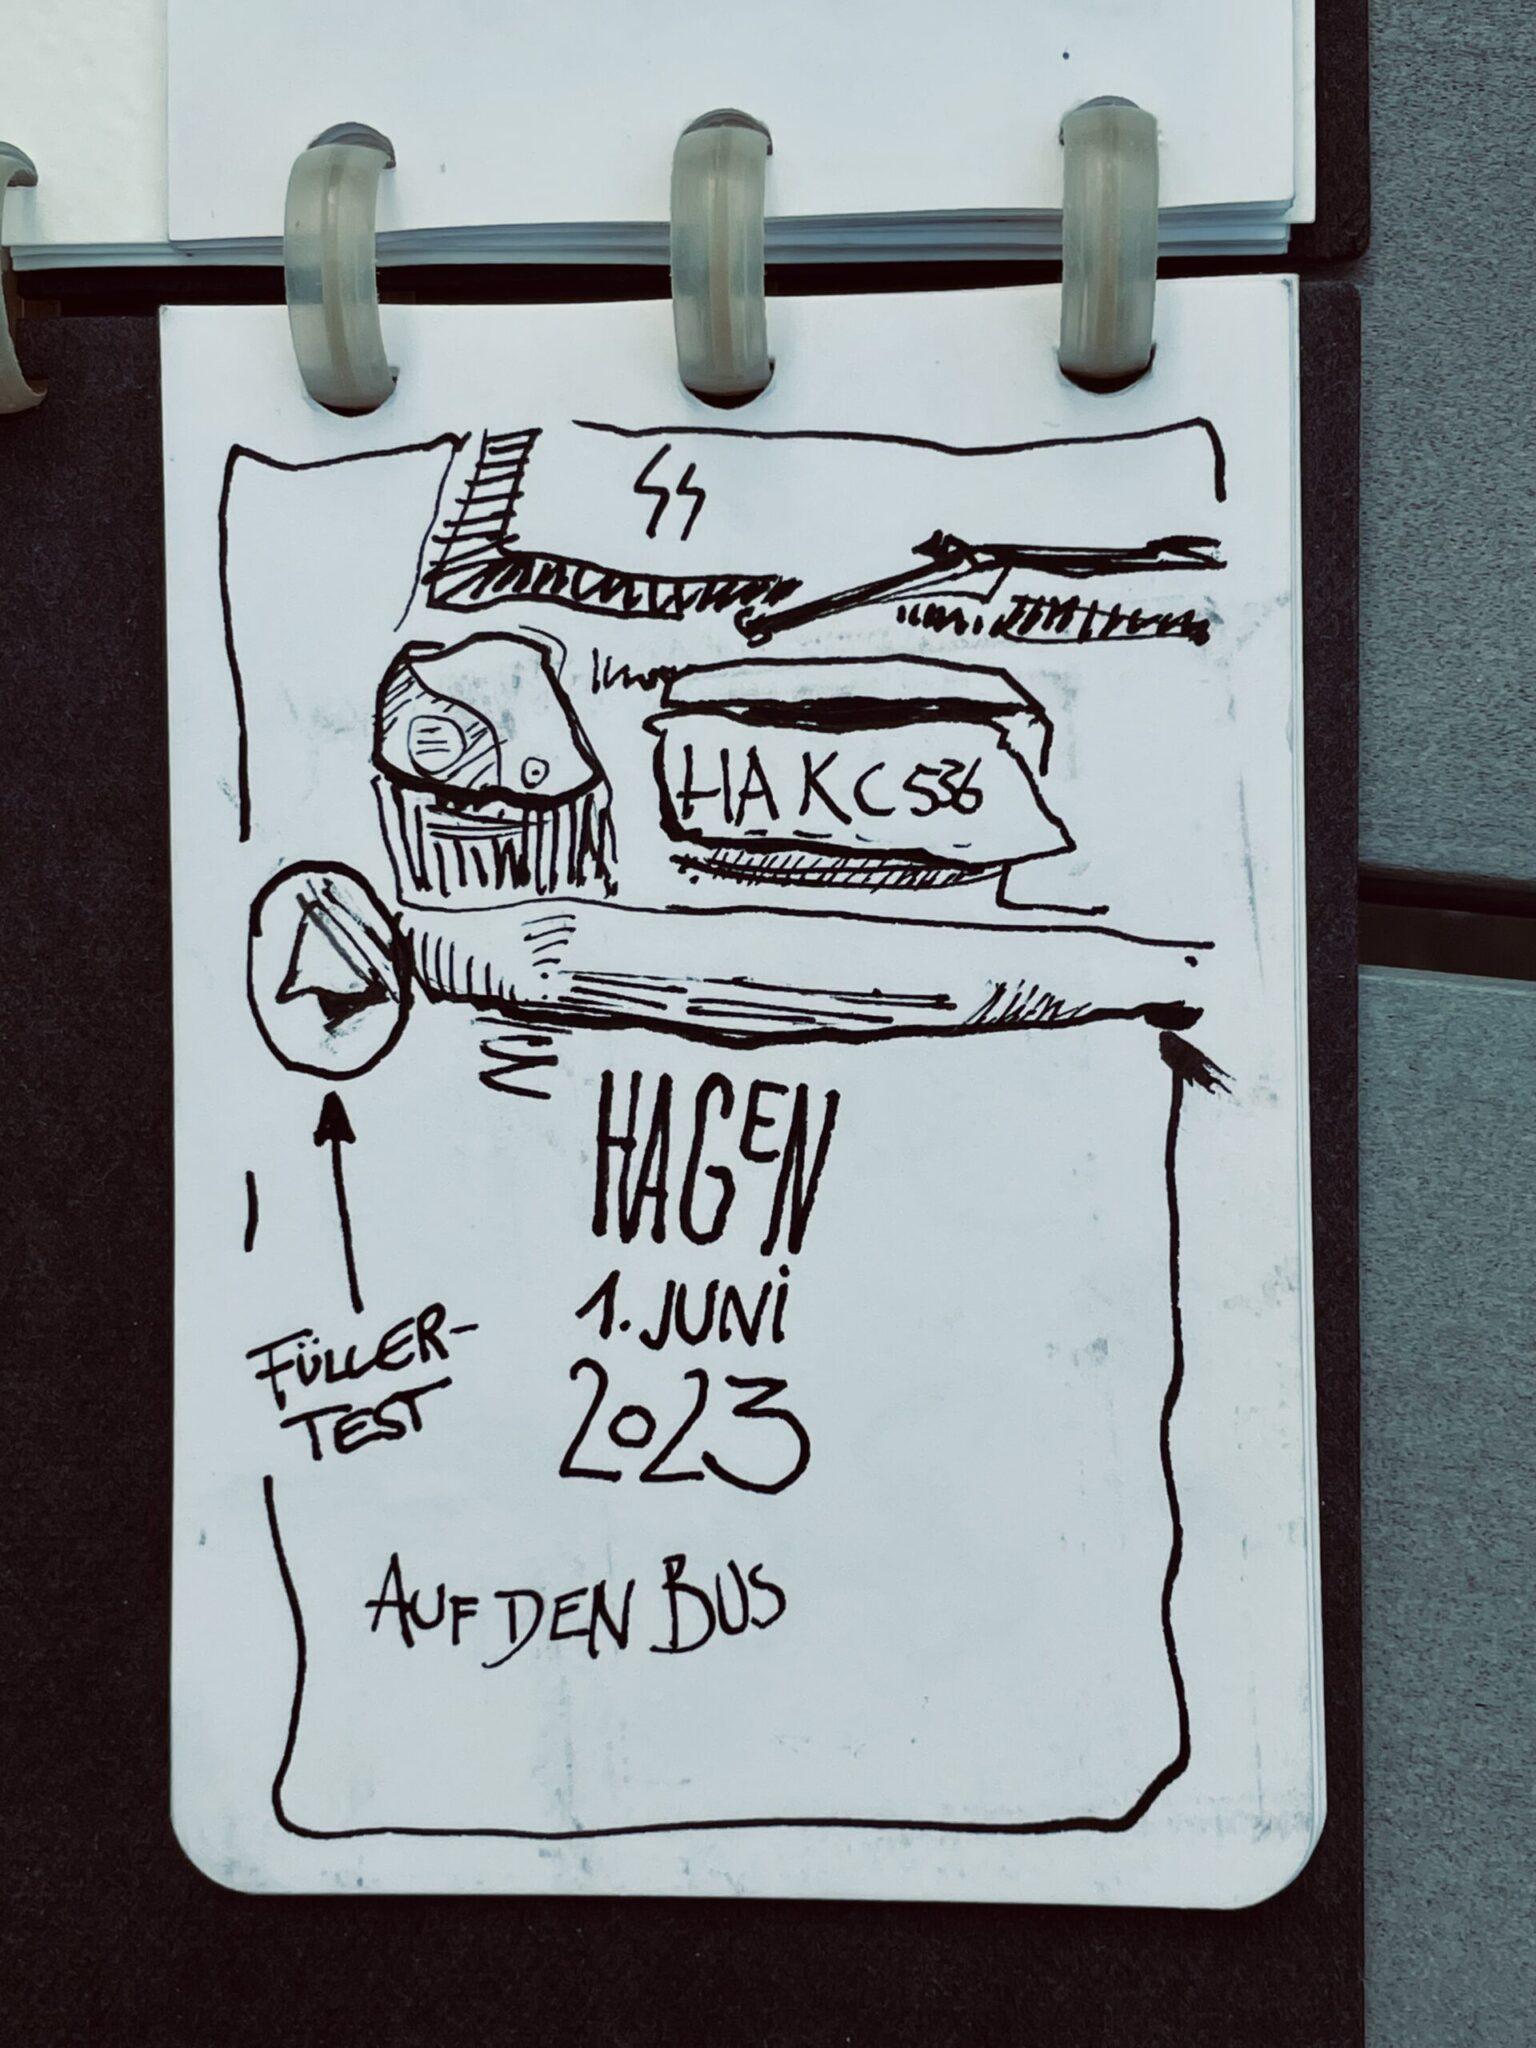 HA KC 536
HAGEN
1. JUNI
2023
FÜLLER-
TEST
AUF DEN BUS